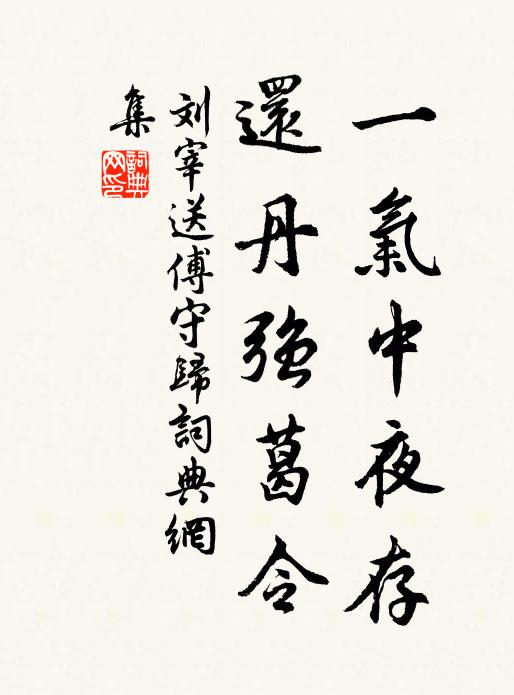 一氣中夜存
還丹強葛令
刘宰送傅守歸詞典網
集
詞典
网印